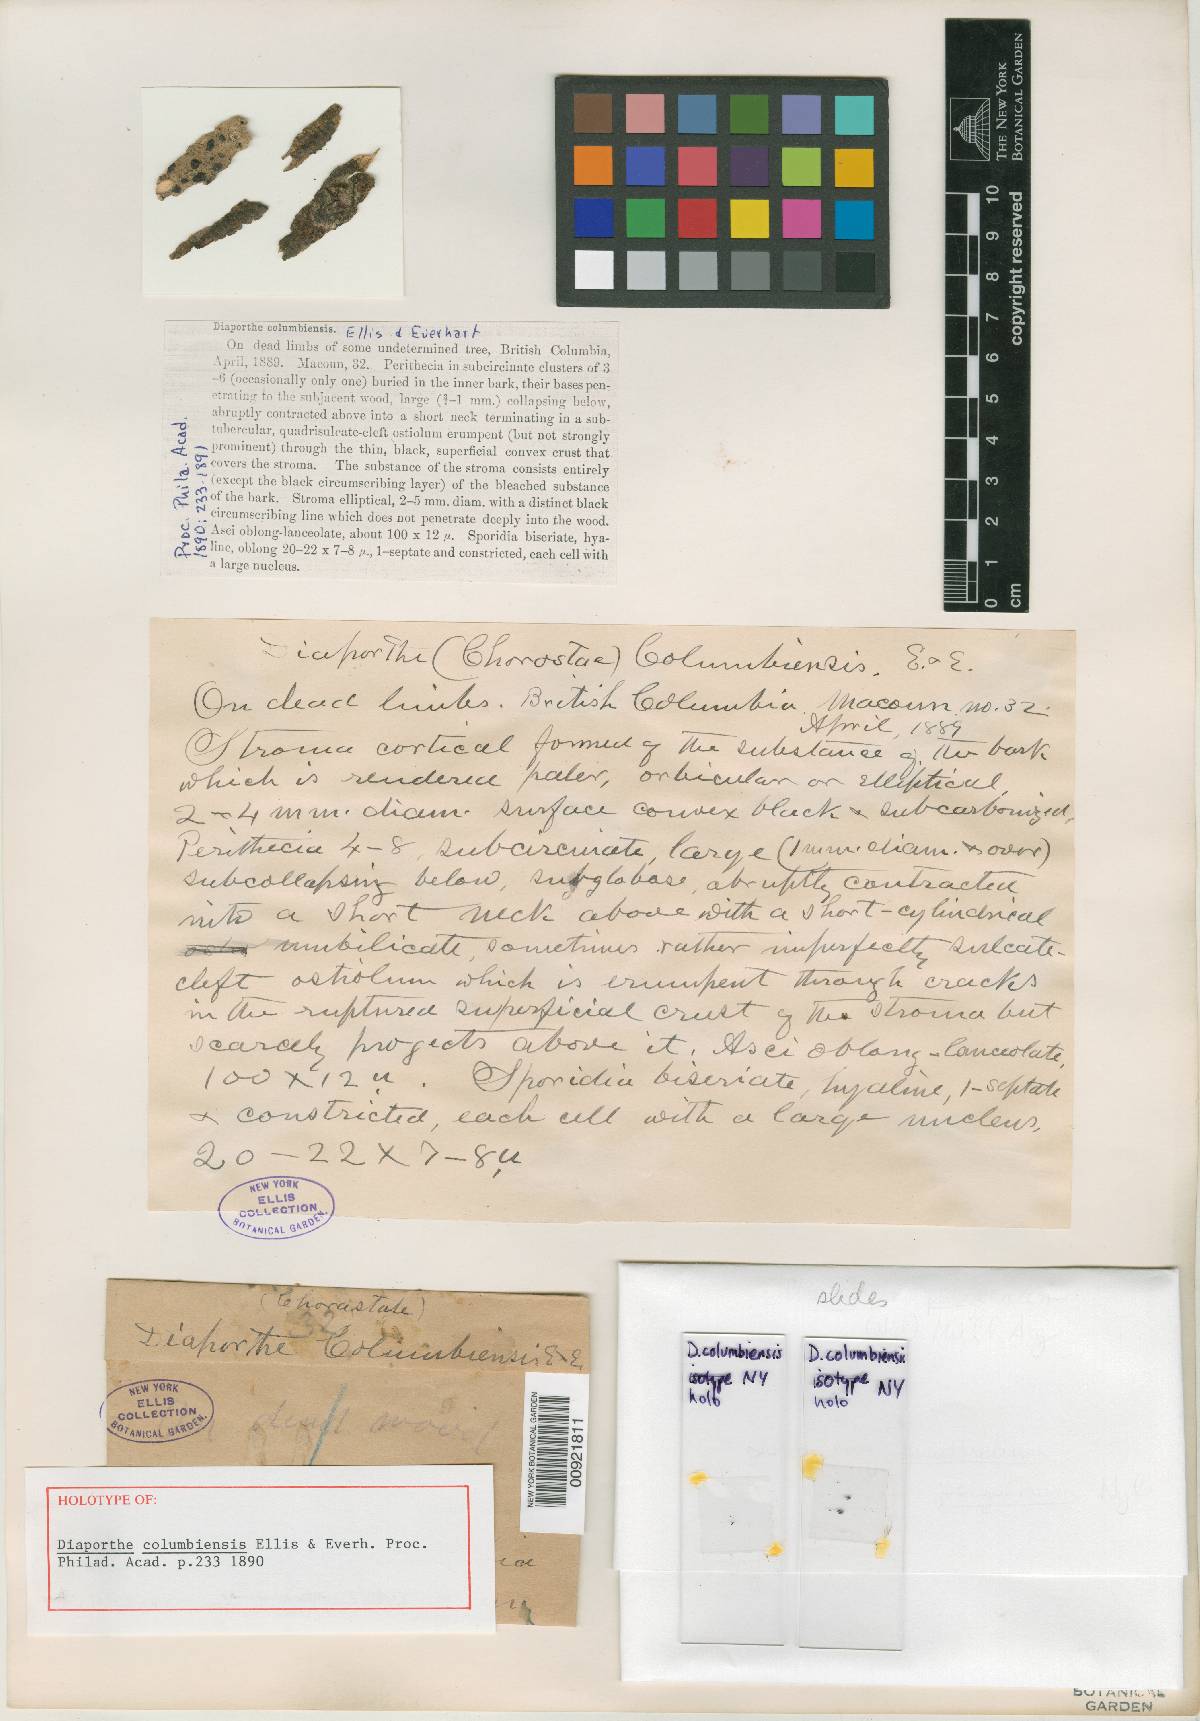 THE NEW YORK
BOTANICAL GARDEN
10
9
8
7
6
5
4
3
2
1
0
cm
copyright reserved
Diaporthe columbiensis. Ellis & Everhart
On dead limbs of some undetermined tree, British Columbia,
April, 1889. Macoun, 32. Perithecia in subcircinate clusters of 3
-6 (occasionally only one) buried in the inner bark, their bases pen-
etrating to the subjacent wood, large (¾–1 mm.) collapsing below,
abruptly contracted above into a short neck terminating in a sub-
tubercular, quadrisulcate-cleft ostiolum erumpent (but not strongly
prominent) through the thin, black, superficial convex crust that
covers the stroma. The substance of the stroma consists entirely
(except the black circumscribing layer) of the bleached substance
of the bark. Stroma elliptical, 2–5 mm. diam. with a distinct black
circumscribing line which does not penetrate deeply into the wood.
Asci oblong-lanceolate, about 100 x 12 µ. Sporidia biseriate, hya-
line, oblong 20–22 x 7–8 µ., 1-septate and constricted, each cell with
a large nucleus.
Proc. Phila. Acad.
1890: 233. 1891
Diaporthe (Chorostae) Columbiensis. E. & E.
On dead limbs. British Columbia. Macoun no. 32.
April, 1889
Stroma cortical formed of the substance of the bark
which is rendered paler, orbicular or elliptical,
2–4 mm. diam. surface convex black & subcarbonized,
Perithecia 4–8, subcircinate, large (1 mm. diam. & over)
subcollapsing below, subglobose, abruptly contracted
into a short neck above with a short-cylindrical
umbilicate, sometimes rather imperfectly sulcate-
cleft ostiolum which is erumpent through cracks
in the ruptured superficial crust of the stroma but
scarcely progects above it. Asci oblong-lanceolate,
100 x 12 µ. Sporidia biseriate, hyaline, 1-septate
& constricted, each cell with a large nucleus,
20–22 x 7–8 µ
NEW YORK
ELLIS
COLLECTION
BOTANICAL GARDEN.
(Chorostate)
32
Diaporthe Columbiensis E & E.
NEW YORK
ELLIS
COLLECTION
BOTANICAL GARDEN.
dead wood
NEW YORK BOTANICAL GARDEN
00921811
HOLOTYPE OF:
Diaporthe columbiensis Ellis & Everh. Proc.
Philad. Acad. p.233 1890
slides
D. columbiensis
isotype NY
holo
D. columbiensis
isotype NY
holo
BOTANICAL
GARDEN